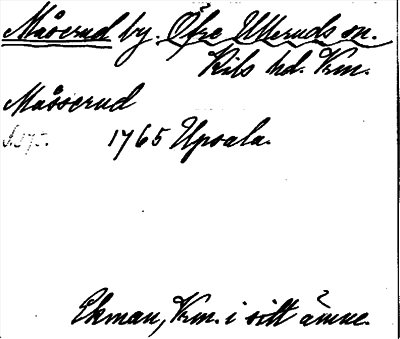 Måserud by. Öfre Ulleruds sn.
Kils hd. Vrm.
Måsserud
S. 175. 1765 Upsala.
Ekman, Vrm. i sitt ämne.